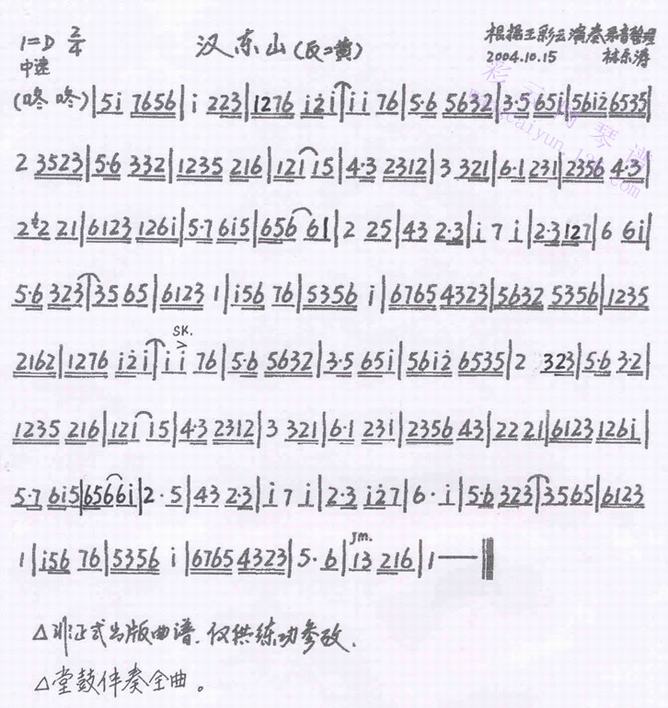 1=D 2/4 汉东山(反二黄) 根据王彩云演奏录音整理
中速 2004.10.15 林乐涛
(咚咚)|5i 7656|i 223|1276 i2i|i i 76|5·6 5632|3·5 65i|56i2 6535|
2 3523|5·6 332|1235 216|12i 15|4·3 2312|3 321|6·1 231|2356 4·3|
2 2 21|6123 126i|5·7 6i5|656 61|2 25|43 2·3|i 7 i|2·3 127|6 6i|
5·6 323|35 65|6123 1|i56 76|5356 i|6765 4323|5632 5356|1235
SK.
2162|1276 i2i|i i 76|5·6 5632|3·5 65i|56i2 6535|2 323|5·6 3·2|
1235 216|12i 15|4·3 2312|3 321|6·1 231|2356 43|22 21|6123 126i|
5·7 6i5|6566i|2·5|43 2·3|i 7 i|2·3 i27|6·i|5·6 323|3565|6123
jm.
1|i56 76|5356 i|6765 4323|5·6|13 216|1—‖
△非正式出版曲谱.仅供练功参考.
△堂鼓伴奏全曲。